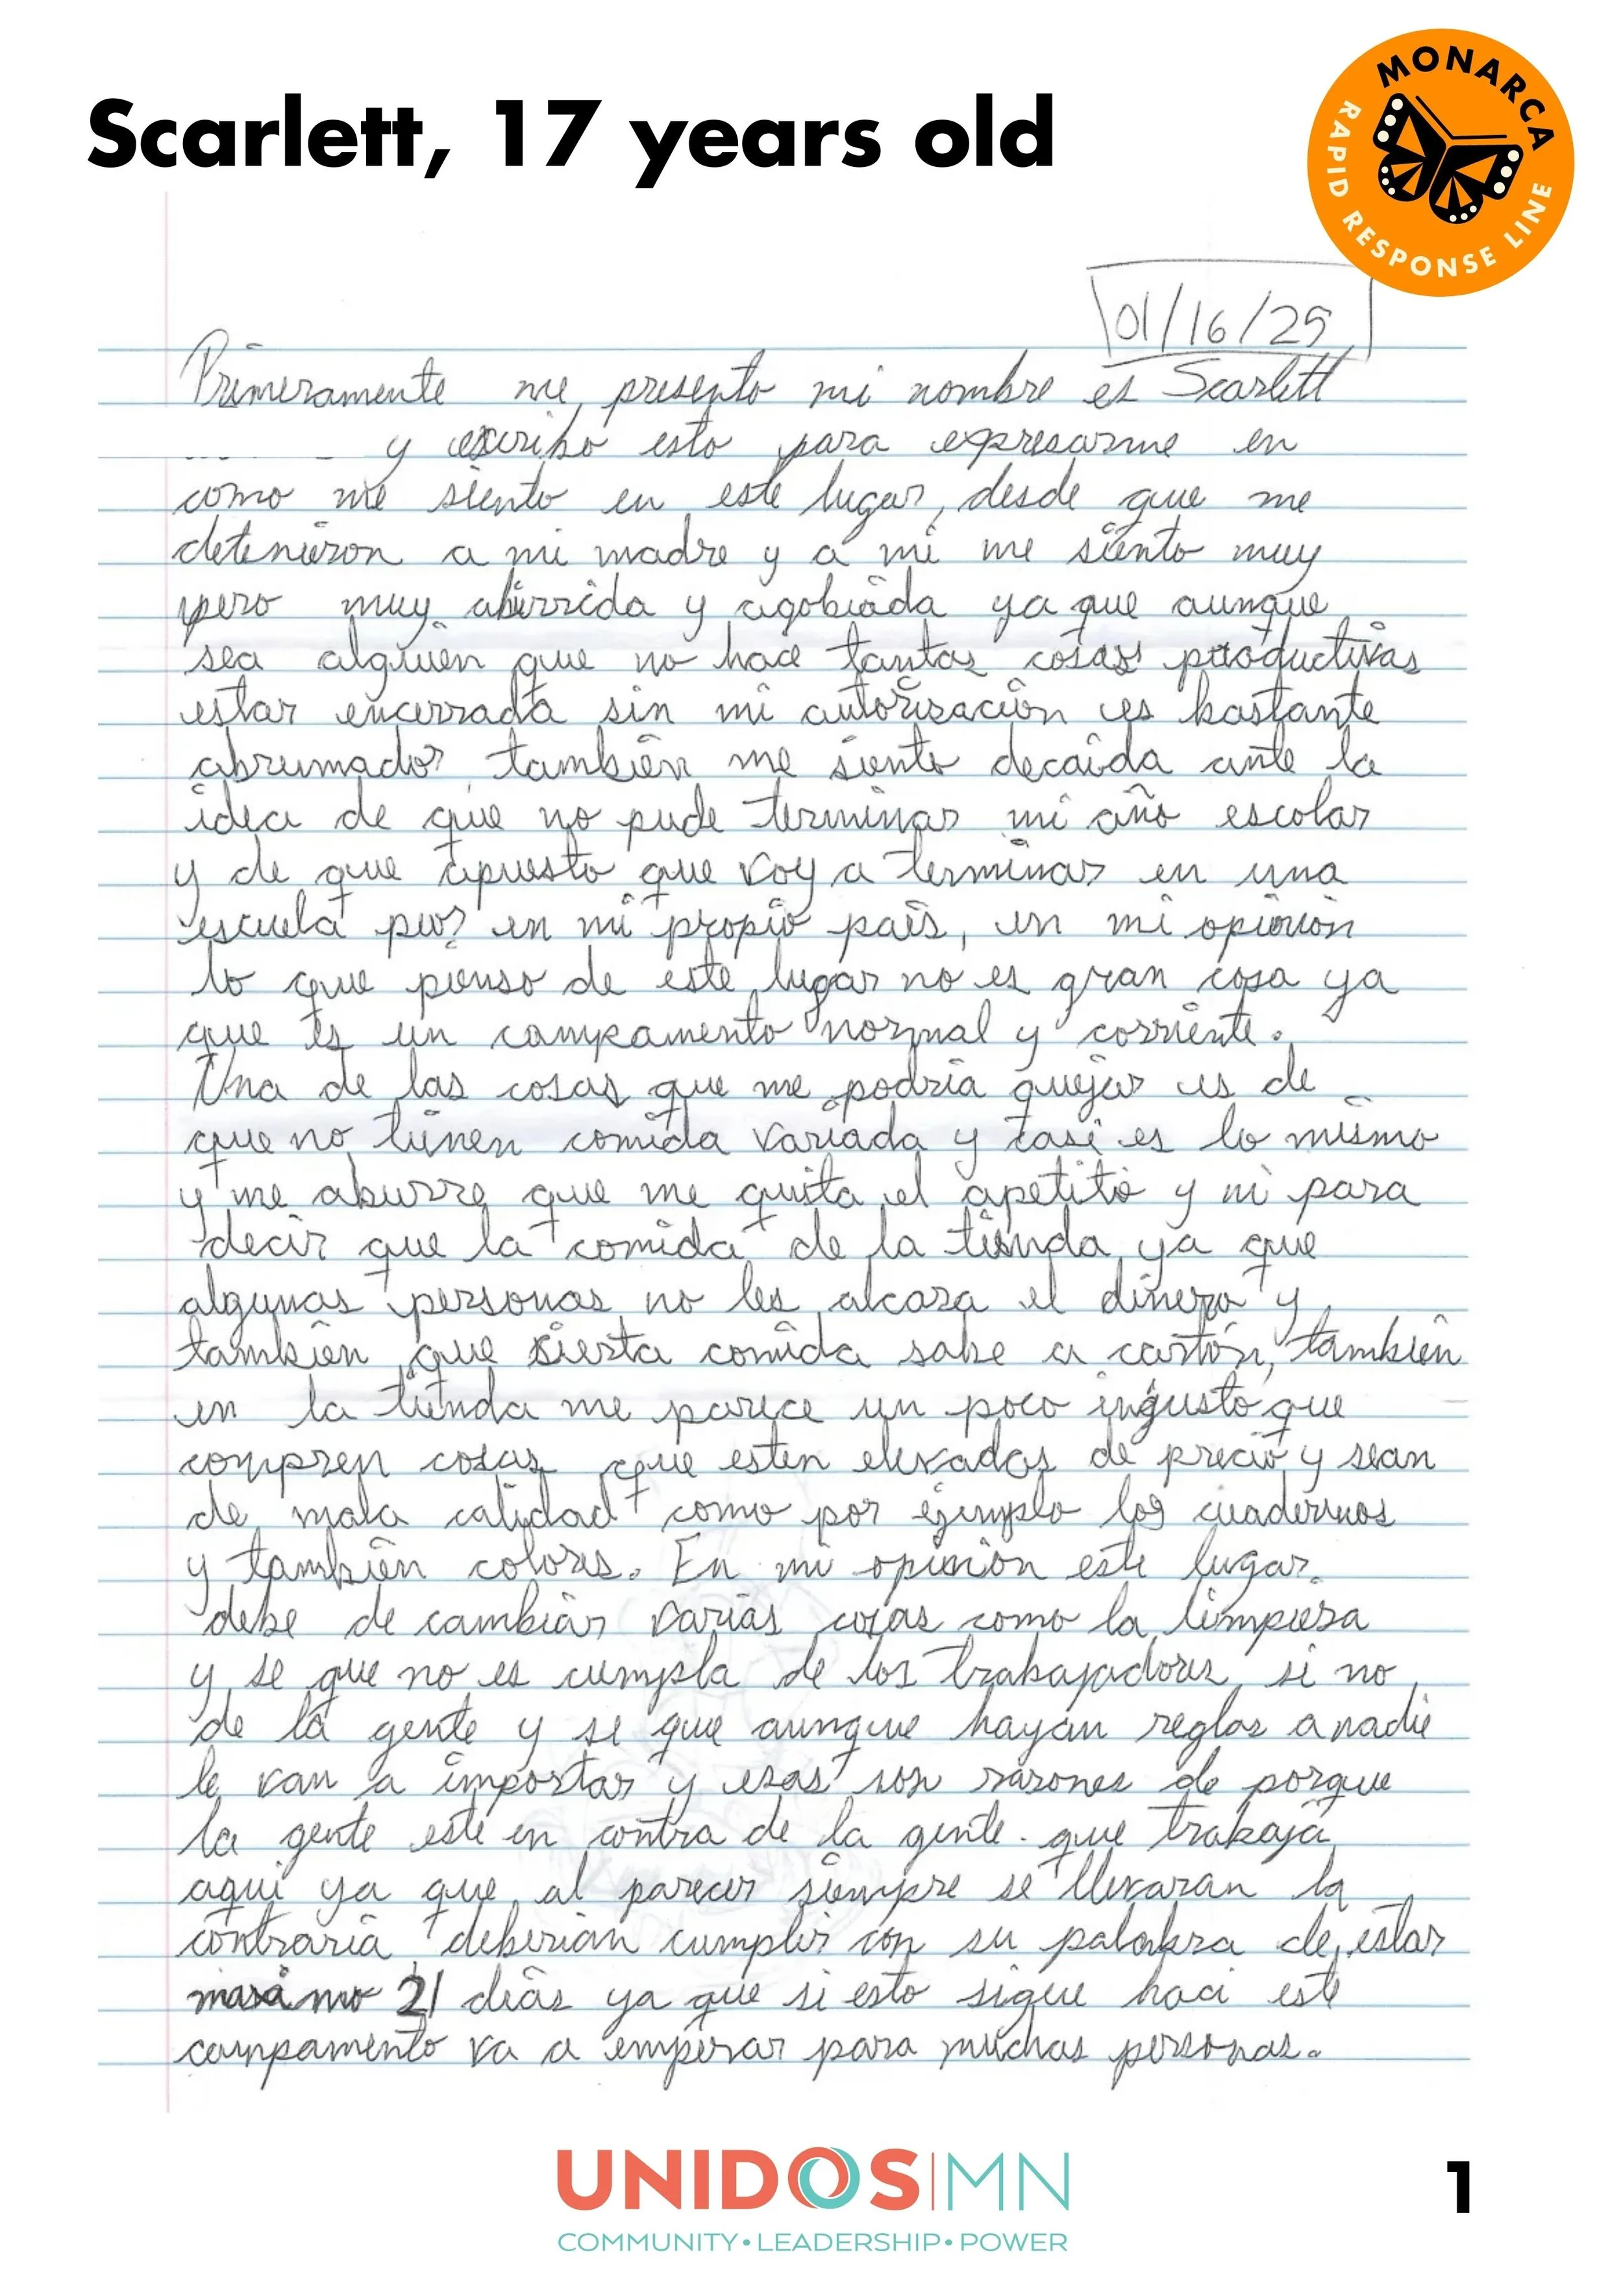 Scarlett, 17 years old
MONARCA
RAPID RESPONSE LINE
01/16/25
Primeramente me presento mi nombre es Scarlett
y escribo esto para expresarme en
como me siento en este lugar, desde que me
detenieron a mi madre y a mi me siento muy
pero muy aburrida y agobiada ya que aunque
sea alguien que no hace tantas cosas productivas
estar encerrada sin mi autorización es bastante
abrumador también me siento decaida ante la
idea de que no pude terminar mi año escolar
y de que apuesto que voy a terminar en una
escuela peor en mi propio país, en mi opinión
lo que pienso de este lugar no es gran cosa ya
que es un campamento normal y corriente.
Una de las cosas que me podria quejar es de
que no tienen comida variada y casi es lo mismo
y me aburre que me quita el apetito y ni para
decir que la comida de la tienda ya que
algunas personas no les alcaza el dinero y
también que sierta comida sabe a cartón, también
en la tienda me parece un poco injusto que
compren cosas que esten elevadas de precio y sean
de mala calidad como por ejemplo los cuadernos
y también colores. En mi opinión este lugar
debe de cambiar varias cosas como la limpiesa
y se que no es cumpla de los trabajadores si no
de la gente y se que aunque hayan reglas a nadie
le van a importar y esas son rasones de porque
la gente esté en contra de la gente que trabaja
aqui ya que al parecer siempre se llevaran la
contraria deberian cumplir con su palabra de estar
maximo 21 dias ya que si esto sigue haci este
campamento va a emperar para muchas personas.
UNIDOS|MN
COMMUNITY•LEADERSHIP•POWER
1